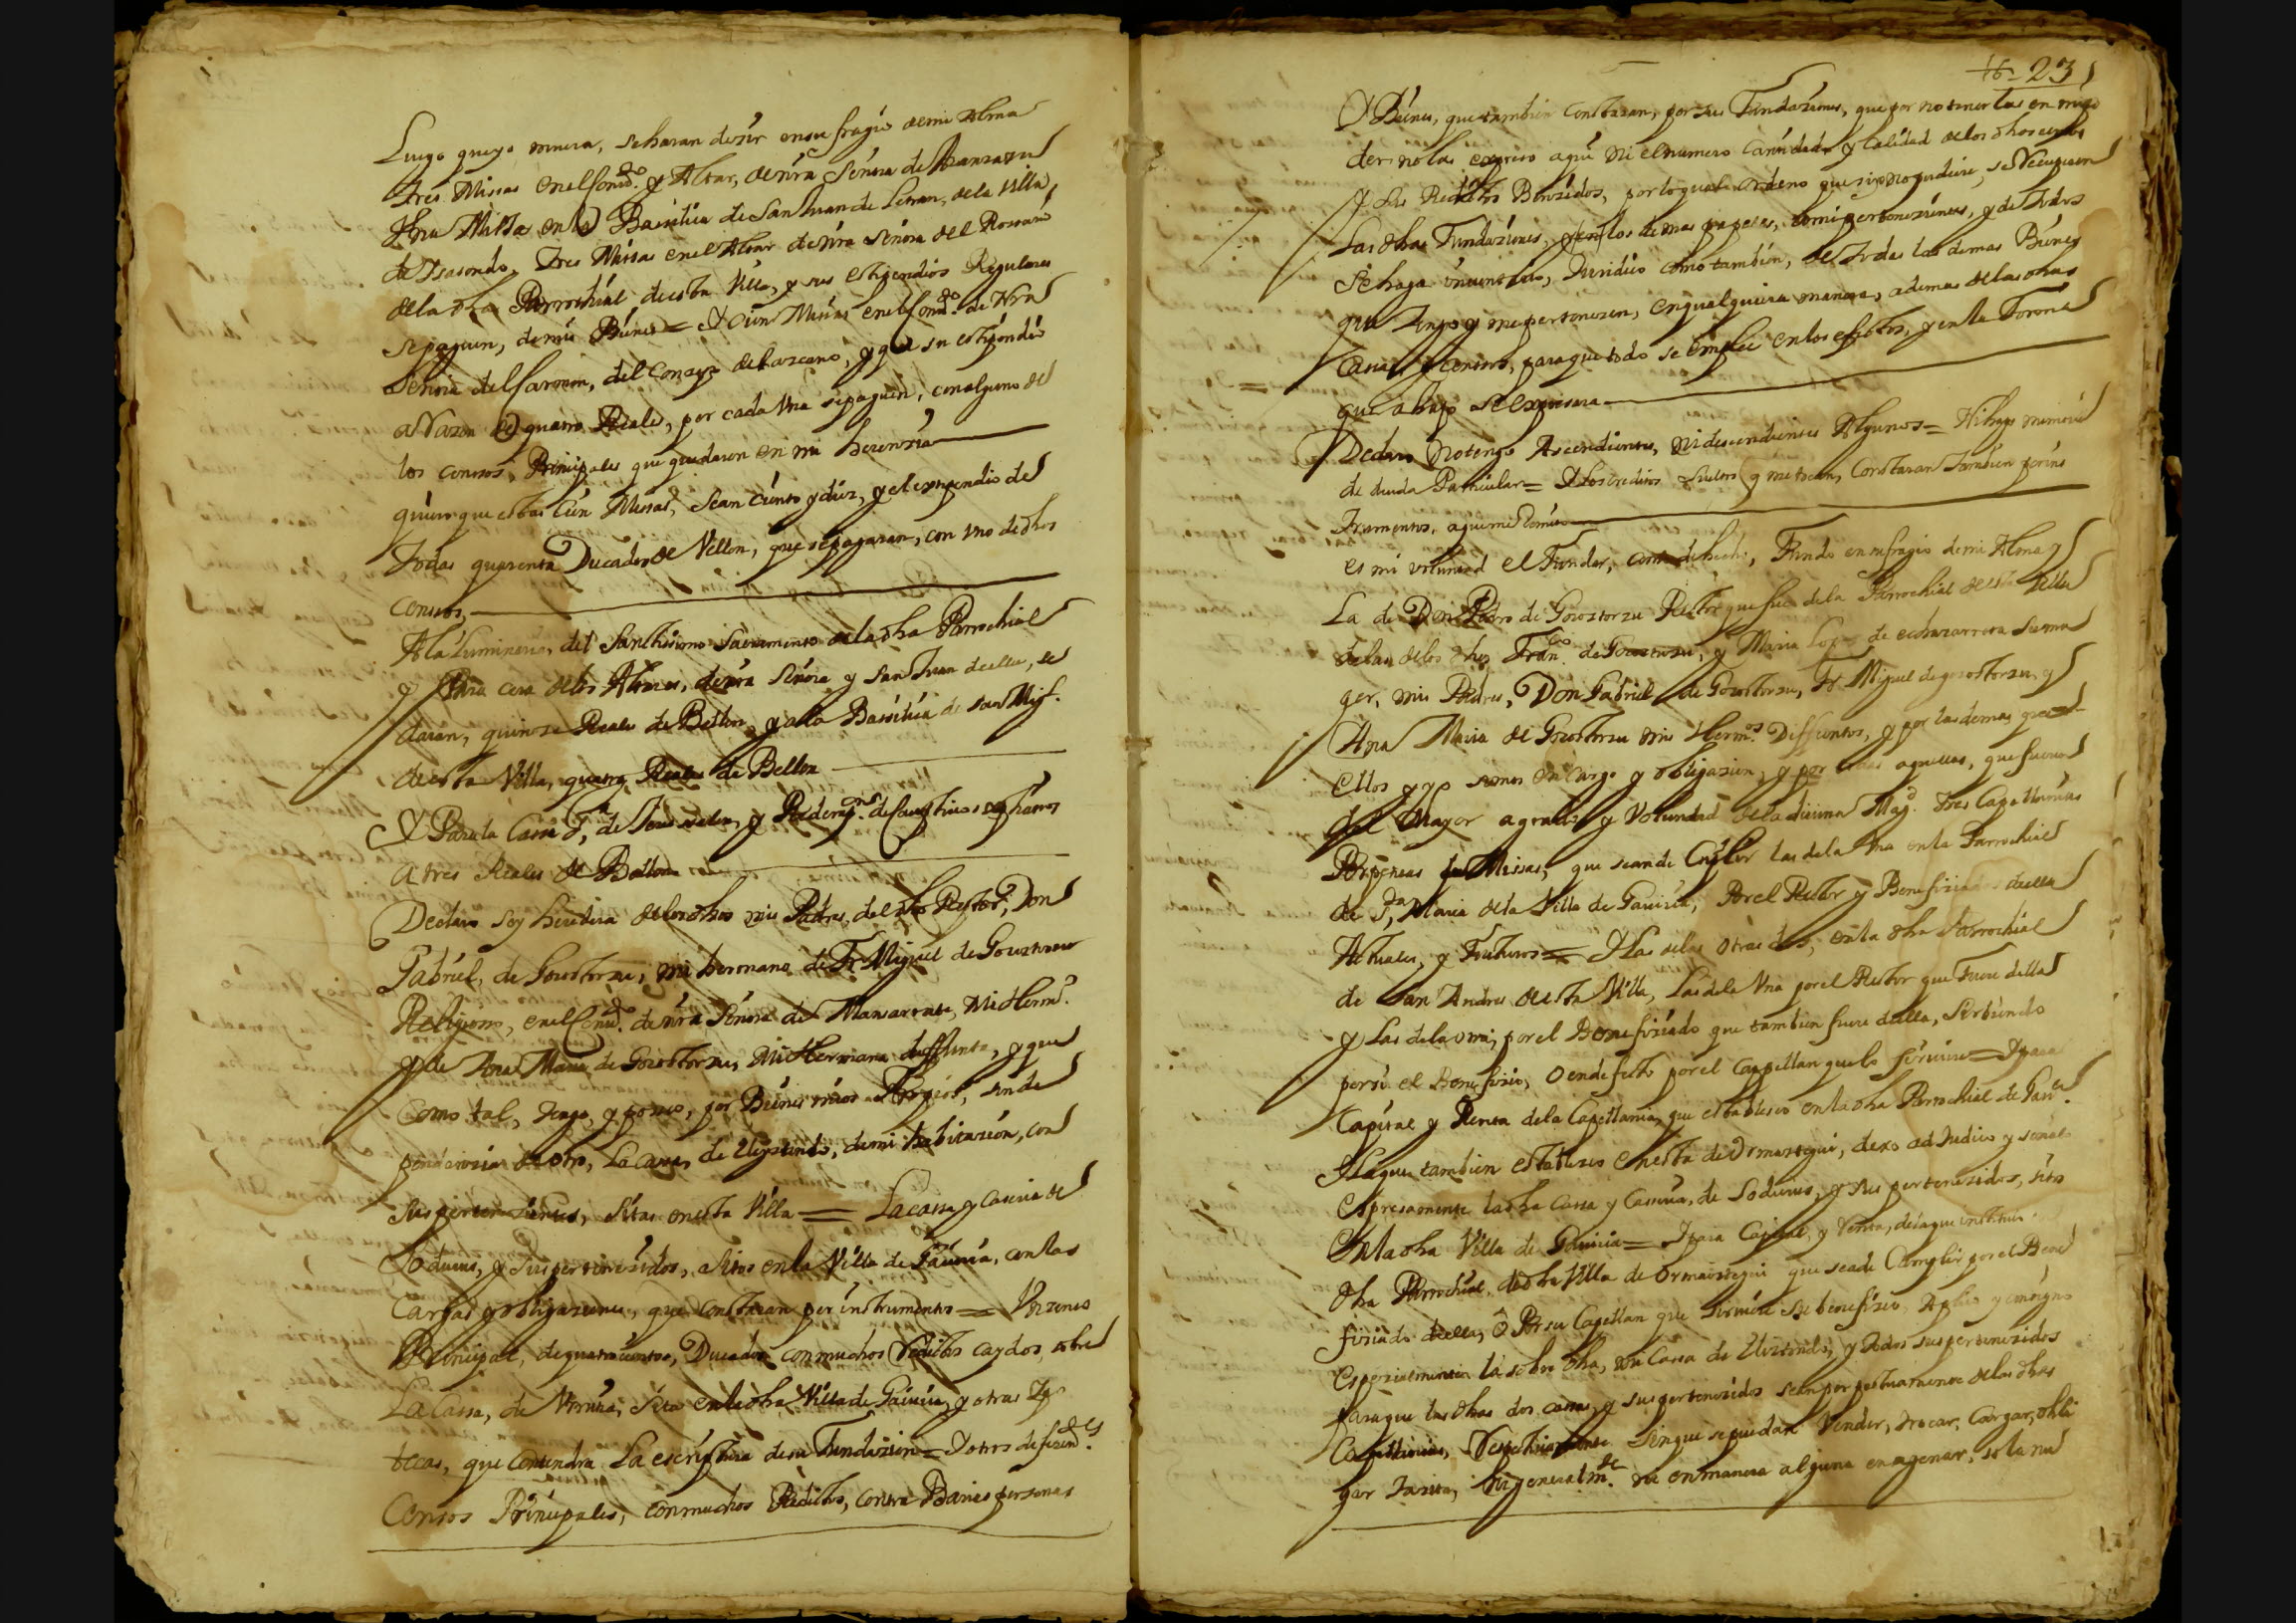 Luego que yo muera, se haran desir en sufragio de mi Alma
tres Missas en el Conu.do y Altar, de nra Señora de Aranzazu
Una Missa en la Basilica de San Juan de Letran, de la Villa
de Ysasondo, Tres Missas en el Altar de nra Señora del Rossario
de la dha Parrochial de esta Villa, y sus estipendios Regulares
se paguen, de mis Bienes = Y Cien Missas en el Conu.do de Nra
Señora del Carmen, del Conzejo de Lazcano, y que su estipendio
a Razon de quatro Reales, por cada Una se paguen, con alguno de
los censos, Principales que quedaren en mi herenzia
quiero que estas Cien Missas, sean ciento y diez, y el estipendio de
todas quarenta Ducados de Vellon, que se pagaran, con uno de dhos
censos
A la Luminaria, del Santissimo Sacramento de la dha Parrochial
y Para cera de los Altares, de nra Señora y San Juan de ella, se
daran, quinze Reales de Bellon, y a la Basilica de San Mig.
de esta Villa, quatro Reales de Bellon
Y Para la Casa S.ta de Jerusalen, y Redempz.on de Cauptivos christianos
a tres Reales de Bellon
Declaro soy heredera de los dhos mis Padres, del dho Rector, Don
Gabriel, de Gorostorzu, mi hermano de Fr Miguel de Gorostorzu
Religioso, en el Conu.do de nra Señora de Aranzazu, Mi Herm.
y de Ana Maria de Gorostorzu, Mi Hermana diffunta, y que
como tal, tengo, y posseo, por Bienes mios Propios, sin de
pendenzia de otro, La Casa, de Urystondo, de mi habitazion, con
sus pertenezientes, sitas en esta Villa = La casa y Caseria de
Loduius, y sus pertenezidos, sitos en la Villa de Gauiria, con las
cargas y obligaziones, que constaran por instrumentos = Un senso
Principal, de quatrocientos, Ducados con muchos Reditos caydos, sobre
La Casa, de Urruña, sita en la dha Villa de Gauiria, y otras Ypo
tecas, que contendra La escriptura de su Fundazion = Y otros diferen.tes
Censos Principales, con muchos Reditos, contra Barias personas
23
Y Bienes, que tambien constaran, por sus Fundaziones, que por no tener las en mi po
der no las expreso aqui ni el numero Cantidad y Calidad de los dhos censos
y sus Reditos Benzidos, por lo qual ordeno que si yo no pudiere, se Recupieren
Las dhas Fundaziones, y los demas papeles, a mi pertenezientes, y de todos
se haga inventario, Juridico como tambien, de todos los demas Bienes
que tengo y me pertenezen, en qualquiera manera, a demas de las dhas
casas y censos, para que todo se emplee en los efectos, y en la Forma
que abajo se expresara
Declaro no tengo Ascendientes, ni descendientes Algunos = Ni hago memoria
de deuda Particular = Y los creditos sueltos q me tocan, Constaran tambien por ins
trumentos, a que me Remito
Es mi voluntad el Fundar, como de hecho, Fundo en sufragio de mi Alma y
La de Don Pedro de Gorostorzu Rector que fue de la Parrochial de esta Villa
de las de los dhos Fran.co de Gorostorzu, y Maria Lop de echezarreta su mu
ger, mis Padres, Don Gabriel de Gorostorzu, Fr Miguel de gorostorzu, y
Ana Maria de Gorostorzu mis Herm.os Diffuntos, y por las demas que
ellos y yo somos en cargo y obligazion, y por todas aquellas, que fueren
del Mayor agrado y Voluntad de la diuina Mag.d tres Capellanias
Perpetuas de Missas, que sean de Cumplir las de la Una en la Parrochial
de S.ta Maria de la Villa de Gauiria, Por el Rector y Benefiziados de ella
Actuales, y Futuros = Y Las de las otras dos, en la dha Parrochial
de San Andres de esta Villa, Las de la Una por el Rector que Fuere della
y Las de la otra, por el Benefiziado que tambien fuere della, Sirbiendo
por si el Benefizio, O en defecto por el Cappellan que lo siruiere = Y para
Capital y Renta de la Capellania, que establezco en la dha Parrochial de Gau.a
Y la que tambien establezco en esta de Ormaiztegui, dexo adJudico y señalo
Espresamente la dha Casa y Caseria, de Loduius, y sus pertenezidos, sito
en la dha Villa de Gauiria = Y para Capital, y Renta, de la que instituio
dha Parrochial, de dha Villa de Ormaiztegui que sea de Cumplir por el Bene
fiziado de ella, o Por su Capellan que siruiere el benefizio, Aplico y consigno
Espezialmente la sobre dha, mi Casa de Uristondo, y Todos sus pertenezidos
para que las dhas dos casas, y sus pertenezidos sean perpetuamente de las dhas
Capellanias, Respectiuamente sin que se puedan Vender, trocar, Cargar, obli
gar tazita, ni general m.te ni en manera alguna enagenar, so la nu